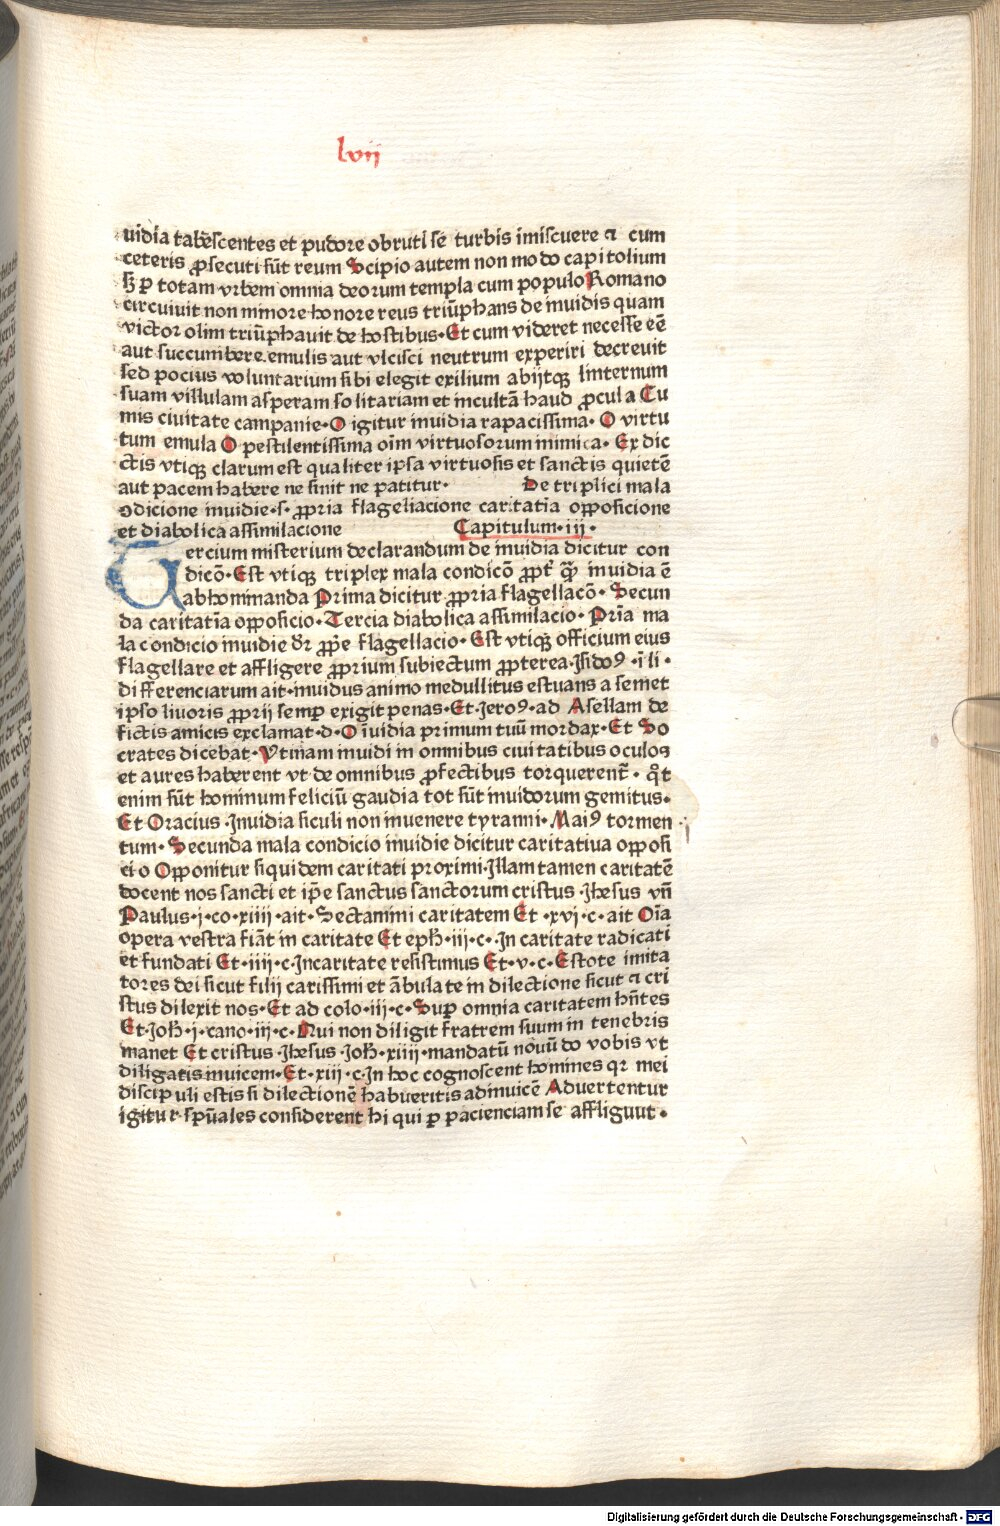 lvii
uidia tabēscentes et pudore obruti se turbis imiscuere ⁊ cum
ceteris ꝓsecuti sūt reum Scipio autem non modo capitolium
sꝫ ꝑ totam vrbem omnia deorum templa cum populo Romano
circuiuit non minore honore reus triūphans de inuidis quam
victor olim triūphauit de hostibus·Et cum videret necesse eē
aut succumbere emulis aut vlcisci neutrum experiri decreuit
sed pocius voluntarium sibi elegit exilium abijtqꝫ linternum
suam villulam asperam solitariam et incultā haud ꝓcul a Cu
mis ciuitate campanie·O igitur inuidia rapacissima·O virtu
tum emula O pestilentissima oīm virtuosorum inimica·Ex dic
ctis vtiqꝫ clarum est qualiter ipsa virtuosis et sanctis quietē
aut pacem habere ne sinit ne patitur· De triplici mala
ↄdicione inuidie·s·ꝓpria flagellacione caritatīa opposicione
et diabolica assimilacione Capitulum·iii·
Tercium misterium declarandum de inuidia dicitur con
dicō·Est vtiqꝫ triplex mala condicō ꝓpt̄ quā inuidia ē
abhominanda Prima dicitur ꝓpria flagellacō·Secun
da caritatīa opposicio·Tercia diabolica assimilacio·Prīa ma
la condicio inuidie dr̄ ꝓpe flagellacio·Est vtiqꝫ officium eius
flagellare et affligere ꝓprium subiectum ꝓpterea·Isidoꝰ·ī li·
differenciarum ait·inuidus animo medullitus estuans a semet
ipso liuoris ꝓprij semꝑ exigit penas·Et·Jeroꝰ·ad Asellam de
fictis amicis exclamat·d·O īuidia primum tuū mordax·Et So
crates dicebat·Vtinam inuidi in omnibus ciuitatibus oculos
et aures haberent vt de omnibus ꝓfectibus torquerent̄·qͦt
enim sūt hominum feliciū gaudia tot sūt inuidorum gemitus·
Et Oracius·Inuidia siculi non inuenere tyranni·Maiꝰ tormen
tum·Secunda mala condicio inuidie dicitur caritatiua opposi
cio Opponitur siquidem caritati proximi·Illam tamen caritatē
docent nos sancti et ip̄e sanctus sanctorum cristus·Jhesus vn̄
Paulus·i·co·xiiii·ait·Sectamini caritatem Et·xvi·c·ait Oīa
opera vestra fiāt in caritate Et epħ·iii·c·In caritate radicati
et fundati Et·iiii·c·Incaritate resistimus Et·v·c·Estote imita
tores dei sicut filij carissimi et ābulate in dilectione sicut ⁊ cri
stus dilexit nos·Et ad colo·iii·c·Suꝑ omnia caritatem hn̄tes
Et·Joħ·i·cano·iii·c·Qui non diligit fratrem suum in tenebris
manet Et cristus·Jhesus·Joħ·xiiii·mandatū nouū do vobis vt
diligatis inuicem·Et·xiii·c·In hoc cognoscent homines qꝛ mei
discipuli estis si dilectionē habueritis adinuicē Aduertentur
igitur·spūales considerent hi qui ꝑ pacienciam se affligūut·
Digitalisierung gefördert durch die Deutsche Forschungsgemeinschaft - DFG